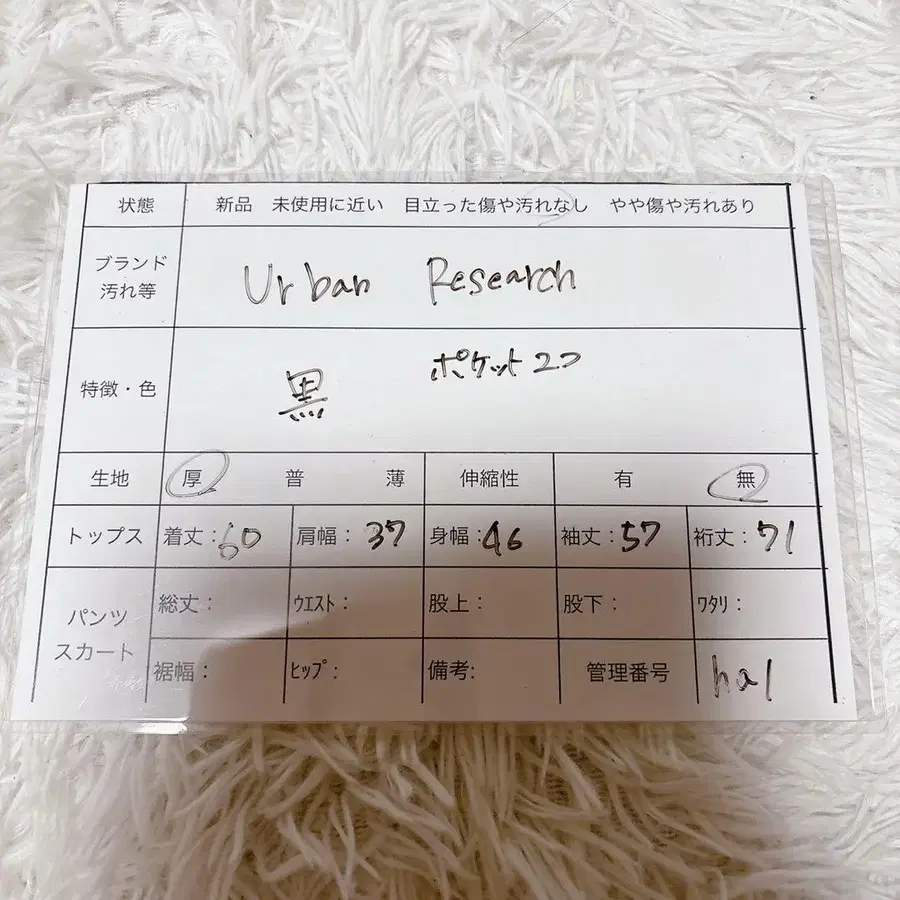 状態 新品 未使用に近い 目立った傷や汚れなし やや傷や汚れあり
ブランド
汚れ等
Urban Research
特徴・色
黒 ポケット2つ
生地 厚 普 薄 伸縮性 有 無
トップス 着丈:60 肩幅:37 身幅:46 袖丈:57 裄丈:71
パンツ
スカート
総丈: ウエスト: 股上: 股下: ワタリ:
裾幅: ヒップ: 備考: 管理番号 ha1